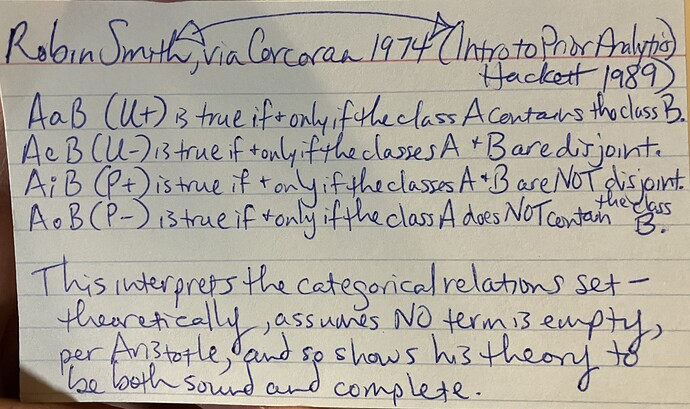 Robin Smith, via Corcoran 1974 (Intro to Prior Analytics)
Hackett 1989)
AaB (U+) is true if + only if the class A contains the class B.
AeB (U-) is true if + only if the classes A + B are disjoint.
AiB (P+) is true if + only if the classes A + B are NOT disjoint.
AoB (P-) is true if + only if the class A does NOT contain the class
B.
This interprets the categorical relations set-
theoretically, assumes NO term is empty,
per Aristotle, and so shows his theory to
be both sound and complete.